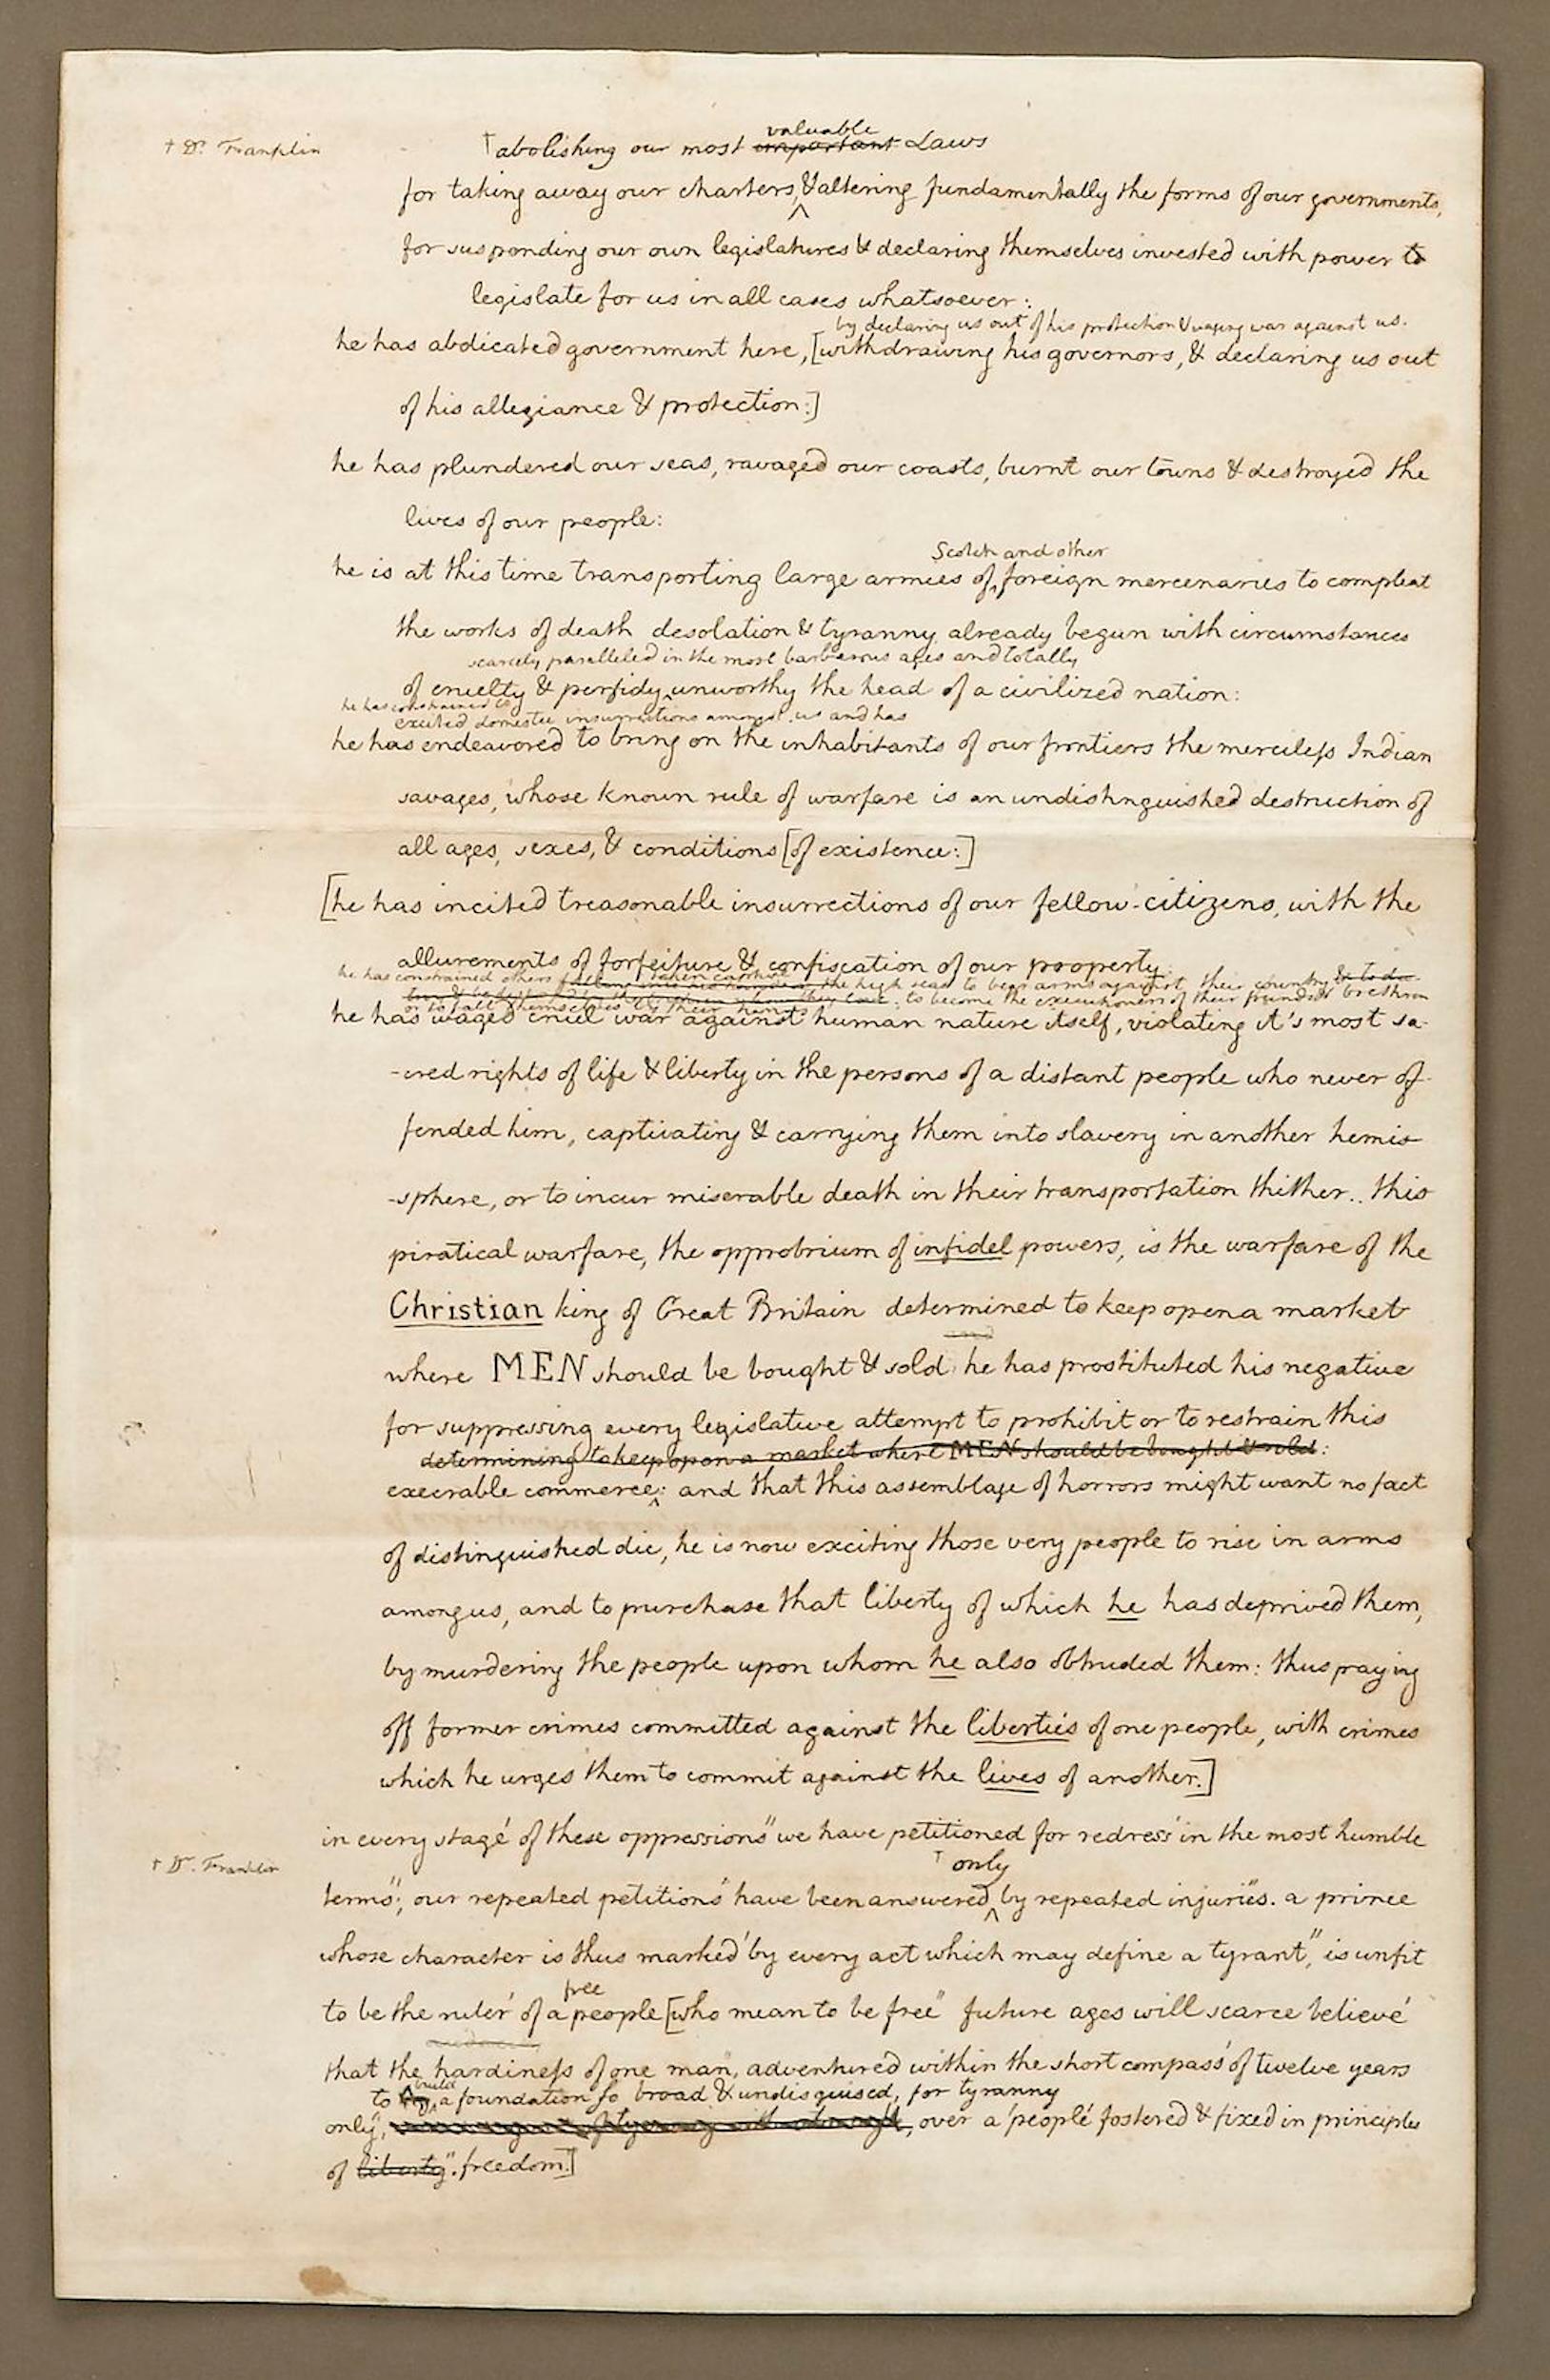 † Dr. Franklin
valuable
† abolishing our most important Laws
for taking away our charters, & altering fundamentally the forms of our governments,
for suspending our own legislatures & declaring themselves invested with power to
legislate for us in all cases whatsoever:
by declaring us out of his protection & waging war against us.
he has abdicated government here, [withdrawing his governors, & declaring us out
of his allegiance & protection:]
he has plundered our seas, ravaged our coasts, burnt our towns & destroyed the
lives of our people:
Scotch and other
he is at this time transporting large armies of foreign mercenaries to compleat
the works of death desolation & tyranny already begun with circumstances
scarcely paralleled in the most barbarous ages and totally
of cruelty & perfidy unworthy the head of a civilized nation:
he has constrained
excited domestic insurrections amongst us and has
he has endeavored to bring on the inhabitants of our frontiers the merciless Indian
savages, whose known rule of warfare is an undistinguished destruction of
all ages, sexes, & conditions [of existence:]
[he has incited treasonable insurrections of our fellow-citizens, with the
allurements of forfeiture & confiscation of our property:
he has constrained others taken captive the high seas to bear arms against their country
to become the executioners of their friends & brethren
or to fall themselves by their hands
he has waged cruel war against human nature itself, violating it's most sa-
-cred rights of life & liberty in the persons of a distant people who never of-
fended him, captivating & carrying them into slavery in another hemis-
-sphere, or to incur miserable death in their transportation thither.. this
piratical warfare, the opprobrium of infidel powers, is the warfare of the
Christian king of Great Britain determined to keep open a market
where MEN should be bought & sold he has prostituted his negative
for suppressing every legislative attempt to prohibit or to restrain this
determining to keep open a market where MEN should be bought & sold:
execrable commerce: and that this assemblage of horrors might want no fact
of distinguished die, he is now exciting those very people to rise in arms
among us, and to purchase that liberty of which he has deprived them,
by murdering the people upon whom he also obtruded them: thus paying
off former crimes committed against the liberties of one people, with crimes
which he urges them to commit against the lives of another.]
in every stage of these oppressions" we have petitioned for redress in the most humble
† Dr. Franklin
† only
terms"; our repeated petitions" have been answered by repeated injuries. a prince
whose character is thus marked by every act which may define a tyrant", is unfit
free
to be the ruler of a people [who mean to be free" future ages will scarce believe
that the hardiness of one man, adventured within the short compass of twelve years
build
to a foundation so broad & undisguised, for tyranny
only", over a people fostered & fixed in principles
of liberty". freedom.]